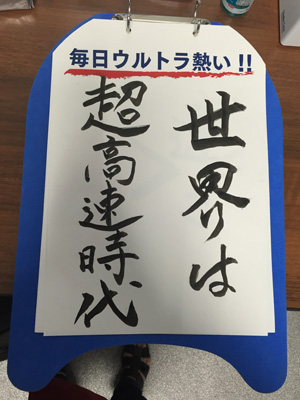 毎日ウルトラ熱い!!
世界は
超高速時代